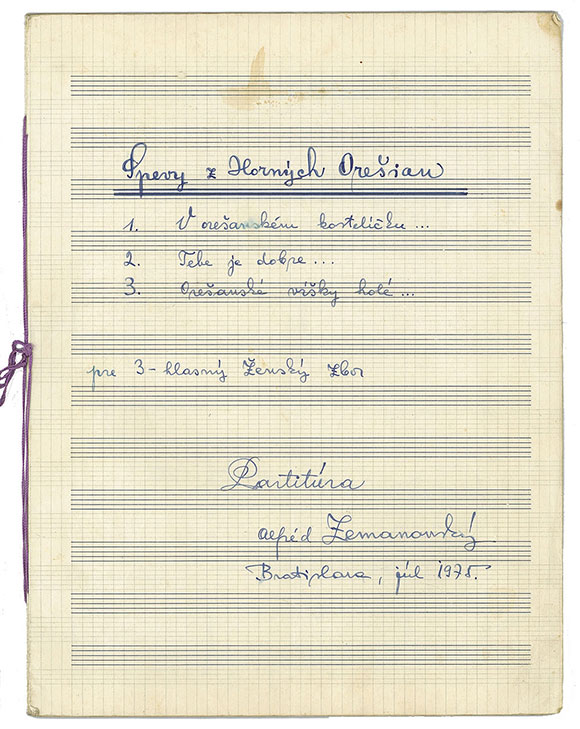 Spevy z Horných Orešian
1. V orešanském kosteličku...
2. Tebe je dobre...
3. Orešanské víšky holé...
pre 3-hlasný ženský zbor
Partitúra
Alfréd Zemanovský
Bratislava, júl 1975.